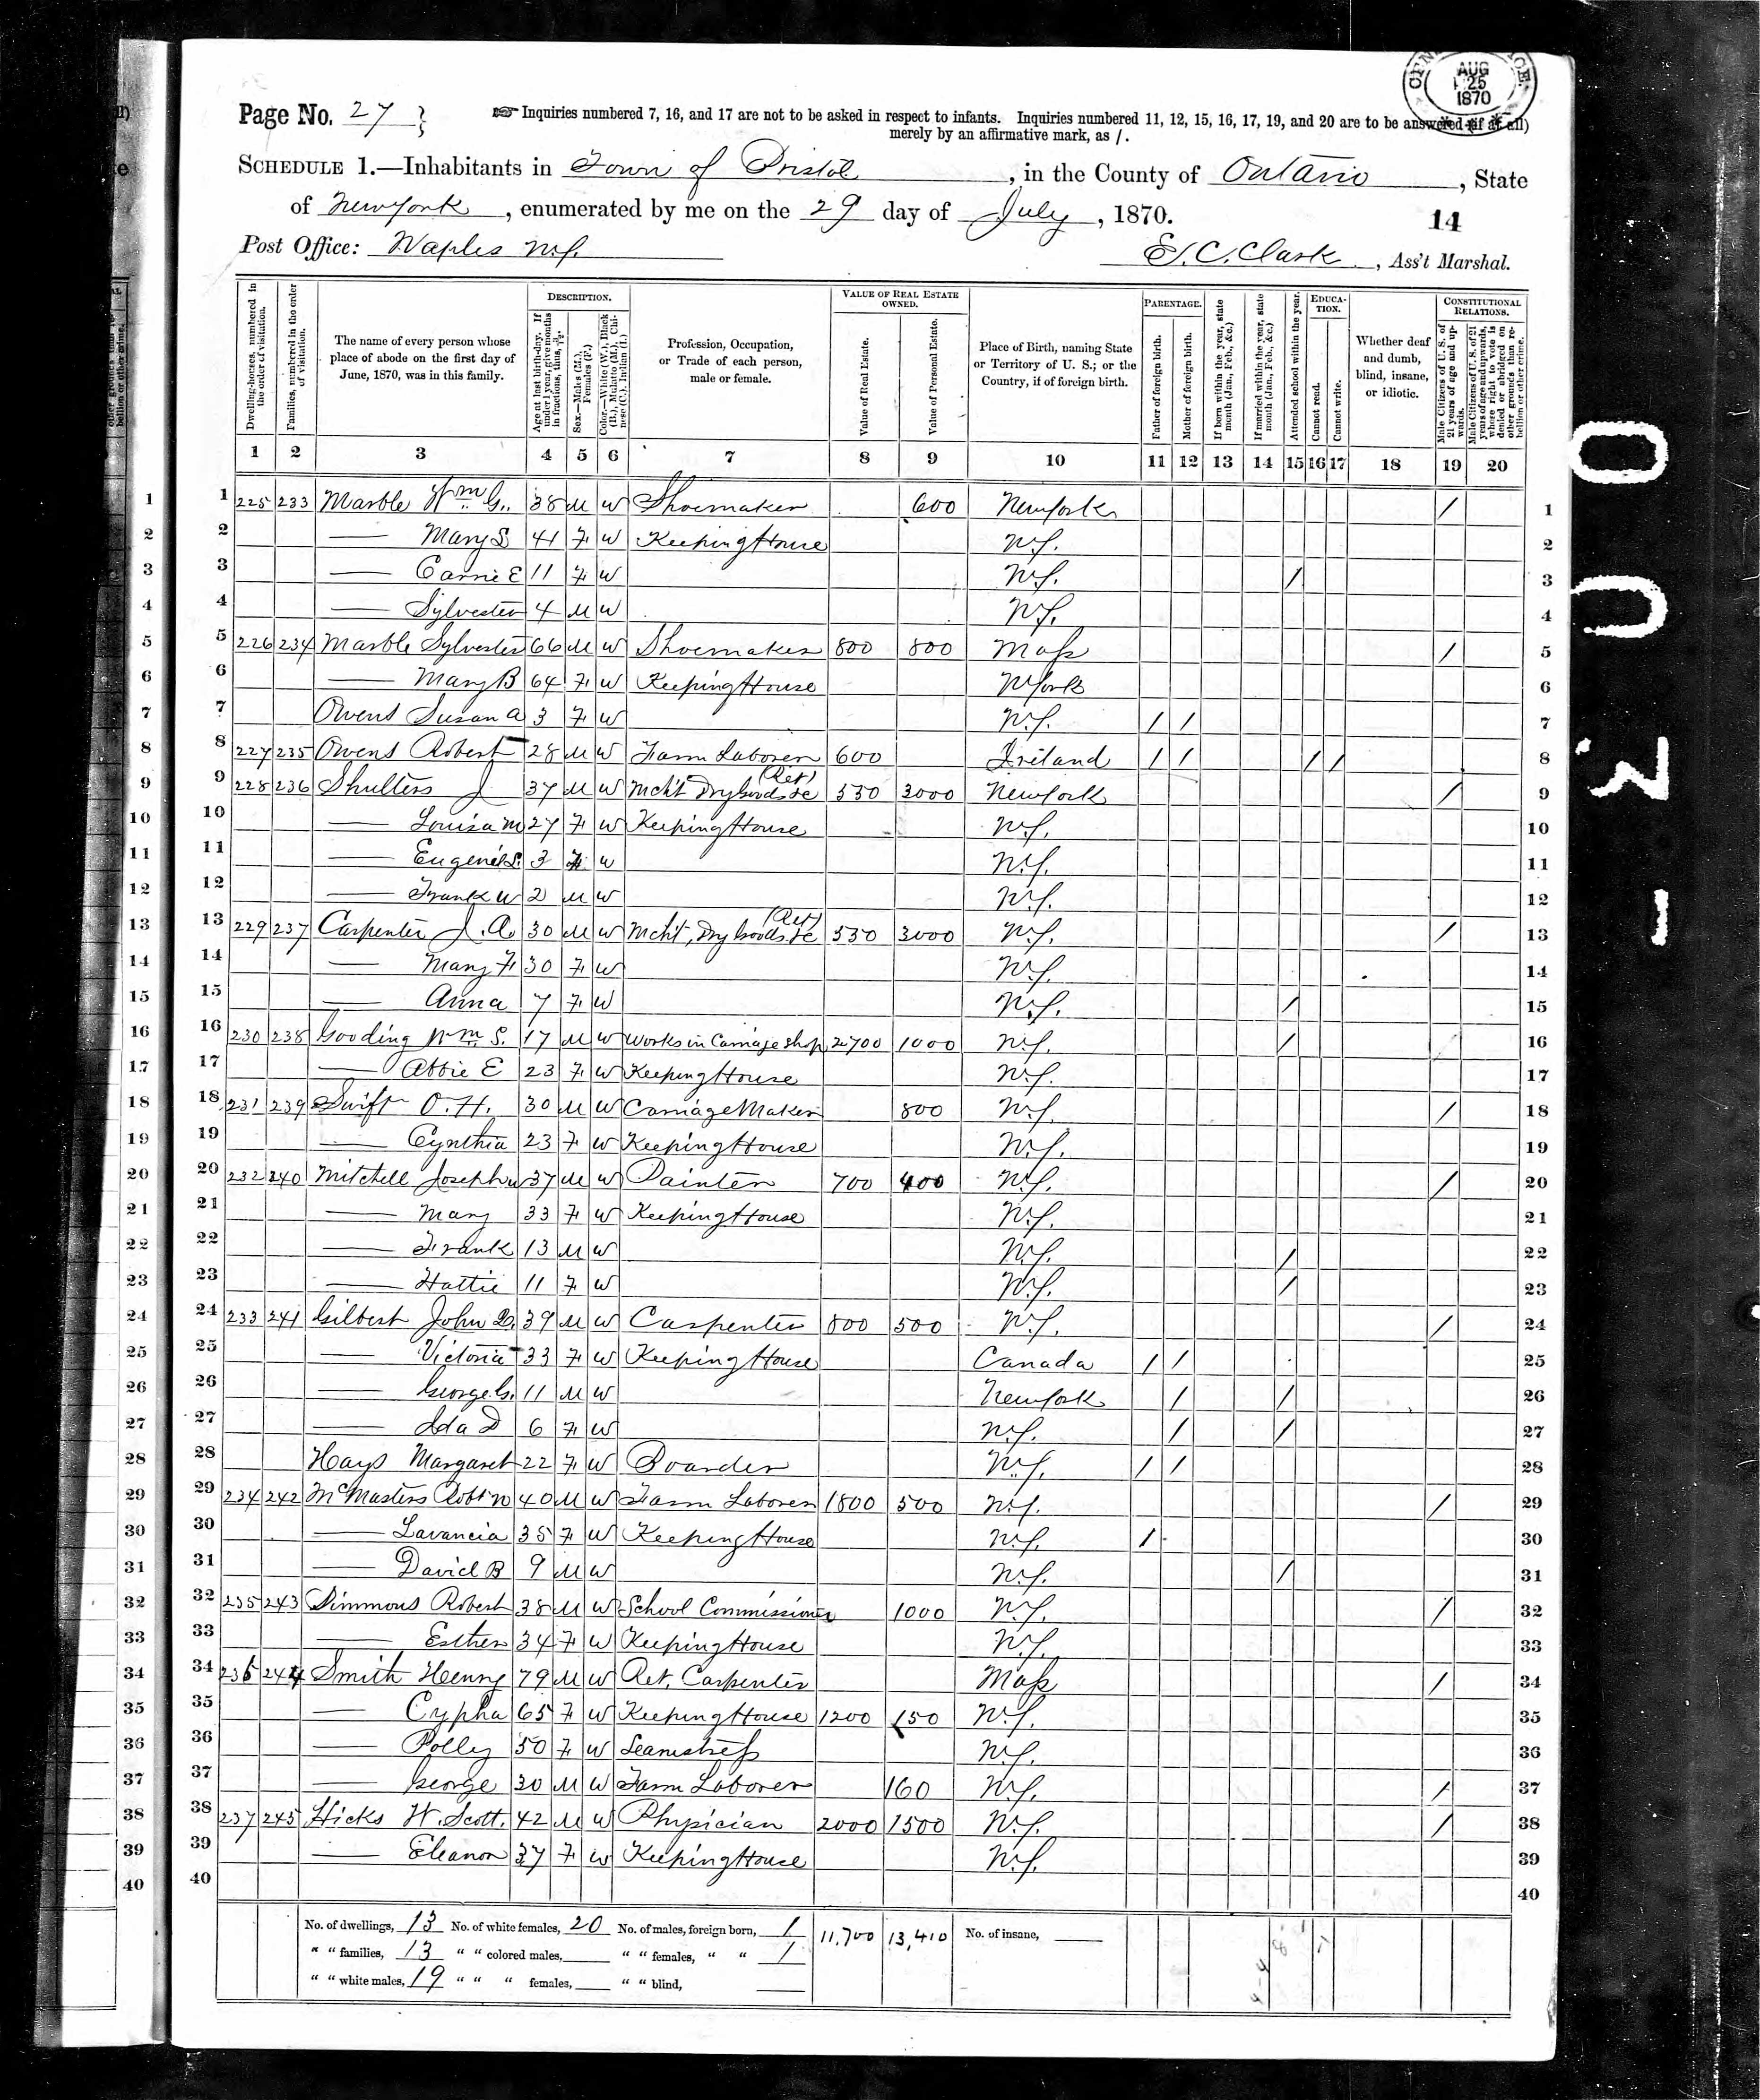 CENSUS OFFICE AUG 25 1870
Page No. 27
☞ Inquiries numbered 7, 16, and 17 are not to be asked in respect to infants. Inquiries numbered 11, 12, 15, 16, 17, 19, and 20 are to be answered (if at all)
merely by an affirmative mark, as /.
SCHEDULE 1.—Inhabitants in Town of Bristol, in the County of Ontario, State
of New York, enumerated by me on the 29 day of July, 1870.
14
Post Office: Naples N.Y.
E. C. Clark, Ass't Marshal.
DESCRIPTION. VALUE OF REAL ESTATE OWNED. PARENTAGE. EDUCATION. CONSTITUTIONAL RELATIONS.
Dwelling-houses, numbered in the order of visitation.
Families, numbered in the order of visitation.
The name of every person whose place of abode on the first day of June, 1870, was in this family.
Age at last birth-day. If under 1 year, give months in fractions, thus, 3/12.
Sex.—Males (M.), Females (F.)
Color.—White (W.), Black (B.), Mulatto (M.), Chinese (C.), Indian (I.)
Profession, Occupation, or Trade of each person, male or female.
Value of Real Estate.
Value of Personal Estate.
Place of Birth, naming State or Territory of U. S.; or the Country, if of foreign birth.
Father of foreign birth.
Mother of foreign birth.
If born within the year, state month (Jan., Feb., &c.)
If married within the year, state month (Jan., Feb., &c.)
Attended school within the year.
Cannot read.
Cannot write.
Whether deaf and dumb, blind, insane, or idiotic.
Male Citizens of U. S. of 21 years of age and upwards.
Male Citizens of U. S. of 21 years of age and upwards, where right to vote is denied or abridged on other grounds than rebellion or other crime.
1 2 3 4 5 6 7 8 9 10 11 12 13 14 15 16 17 18 19 20
1 225 233 Marble Wm G. 38 M W Shoemaker 600 New York / 1
2 — Mary S 41 F W Keeping House N.Y. 2
3 — Carrie E 11 F W N.Y. / 3
4 — Sylvester 4 M W N.Y. 4
5 226 234 Marble Sylvester 66 M W Shoemaker 800 800 Mass / 5
6 — Mary B 64 F W Keeping House N York 6
7 Owens Susan A 3 F W N.Y. / / 7
8 227 235 Owens Robert 28 M W Farm Laborer 600 Ireland / / / / 8
9 228 236 Shulters J 37 M W Mcht Dry Goods &c (Ret) 550 3000 New York / 9
10 — Louisa M 27 F W Keeping House N.Y. 10
11 — Eugene S. 3 W N.Y. 11
12 — Frank W 2 M W N.Y. 12
13 229 237 Carpenter J. A. 30 M W Mcht, Dry Goods &c (Ret) 550 3000 N.Y. / 13
14 — Mary F 30 F W N.Y. 14
15 — Anna 7 F W N.Y. / 15
16 230 238 Gooding Wm S. 17 M W Works in Carriage Shop 2700 1000 N.Y. / 16
17 — Abbie E 23 F W Keeping House N.Y. 17
18 231 239 Swift O. H. 30 M W Carriage Maker 800 N.Y. / 18
19 — Cynthia 23 F W Keeping House N.Y. 19
20 232 240 Mitchell Joseph W 37 M W Painter 700 400 N.Y. / 20
21 — Mary 33 F W Keeping House N.Y. 21
22 — Frank 13 M W N.Y. / 22
23 — Hattie 11 F W N.Y. / 23
24 233 241 Gilbert John 39 M W Carpenter 800 500 N.Y. / 24
25 — Victoria 33 F W Keeping House Canada / / 25
26 — George G. 11 M W New York / / 26
27 — Ida D 6 F W N.Y. / / 27
28 Hays Margaret 22 F W Boarder N.Y. / / 28
29 234 242 McMasters Robt N 40 M W Farm Laborer 1800 500 N.Y. / 29
30 — Lavancia 35 F W Keeping House N.Y. / 30
31 — David B 9 M W N.Y. / 31
32 235 243 Simmons Robert 38 M W School Commissioner 1000 N.Y. / 32
33 — Esther 34 F W Keeping House N.Y. 33
34 236 244 Smith Henry 79 M W Ret. Carpenter Mass / 34
35 — Cypha 65 F W Keeping House 1200 150 N.Y. 35
36 — Polly 50 F W Seamstress N.Y. 36
37 — George 30 M W Farm Laborer 160 N.Y. / 37
38 237 245 Hicks W. Scott. 42 M W Physician 2000 1500 N.Y. / 38
39 — Eleanor 37 F W Keeping House N.Y. 39
40 40
No. of dwellings, 13 No. of white females, 20 No. of males, foreign born, 1 11,700 13,410 No. of insane,
" " families, 13 " " colored males, " " females, " " 1
" " white males, 19 " " " females, " " blind,